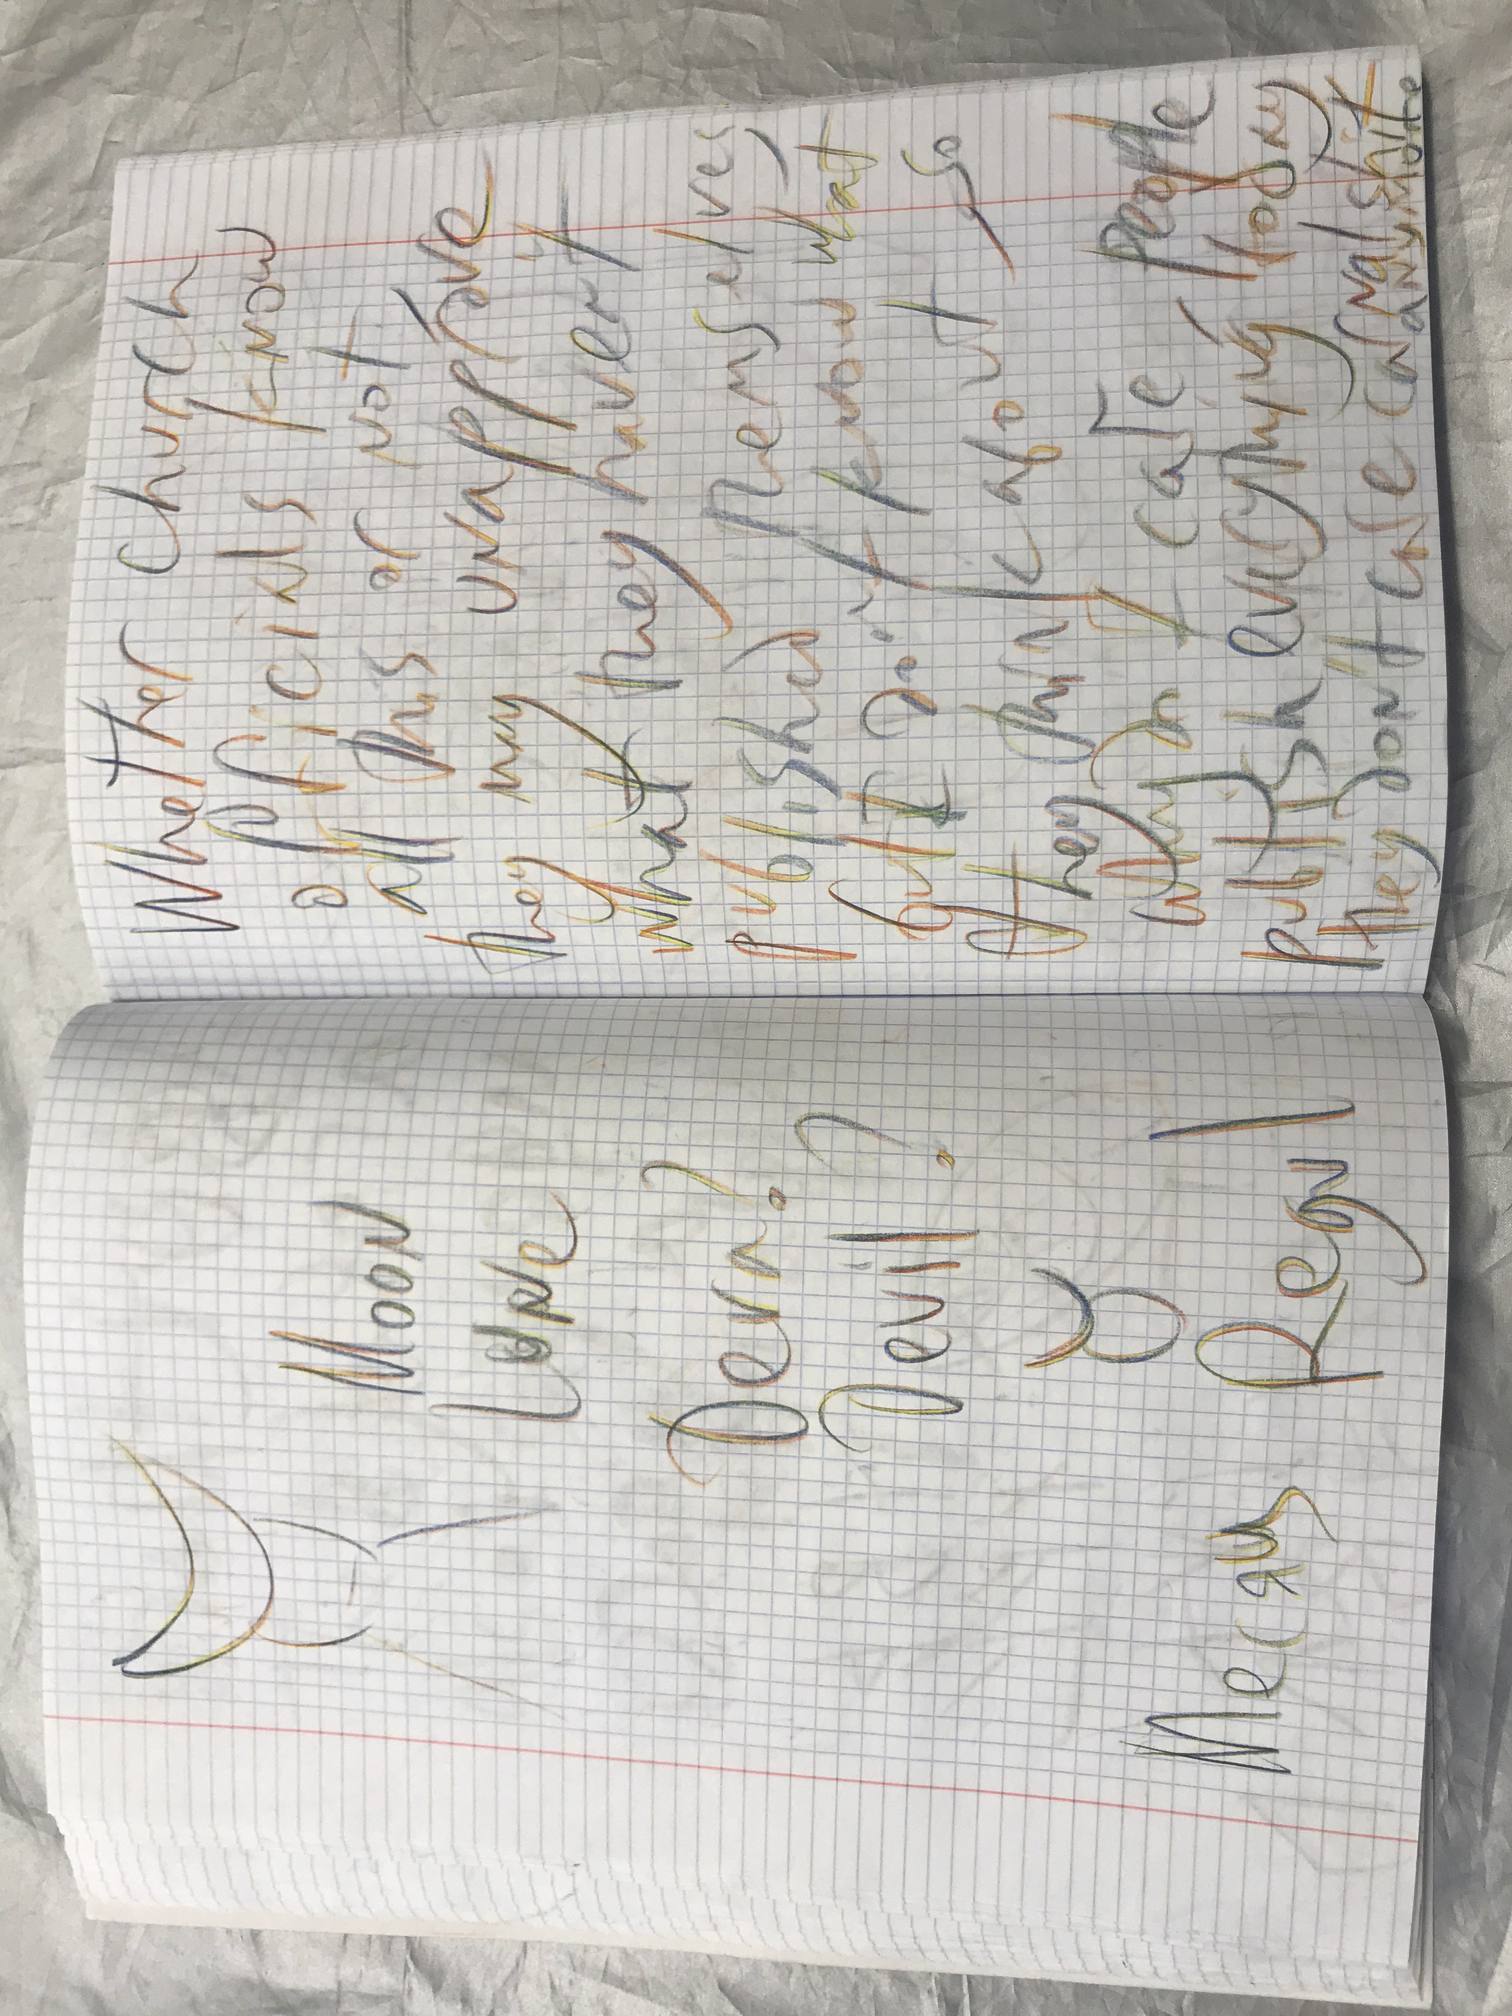 Moon
Lune
Devn?
Devill?
Regn
Whether church
officials know
all this or not
they may unapprove
what they havent
published themselves
but I don't know what
they think about so
why do I care people
publish everything today
they dont care carnal shit
anymore